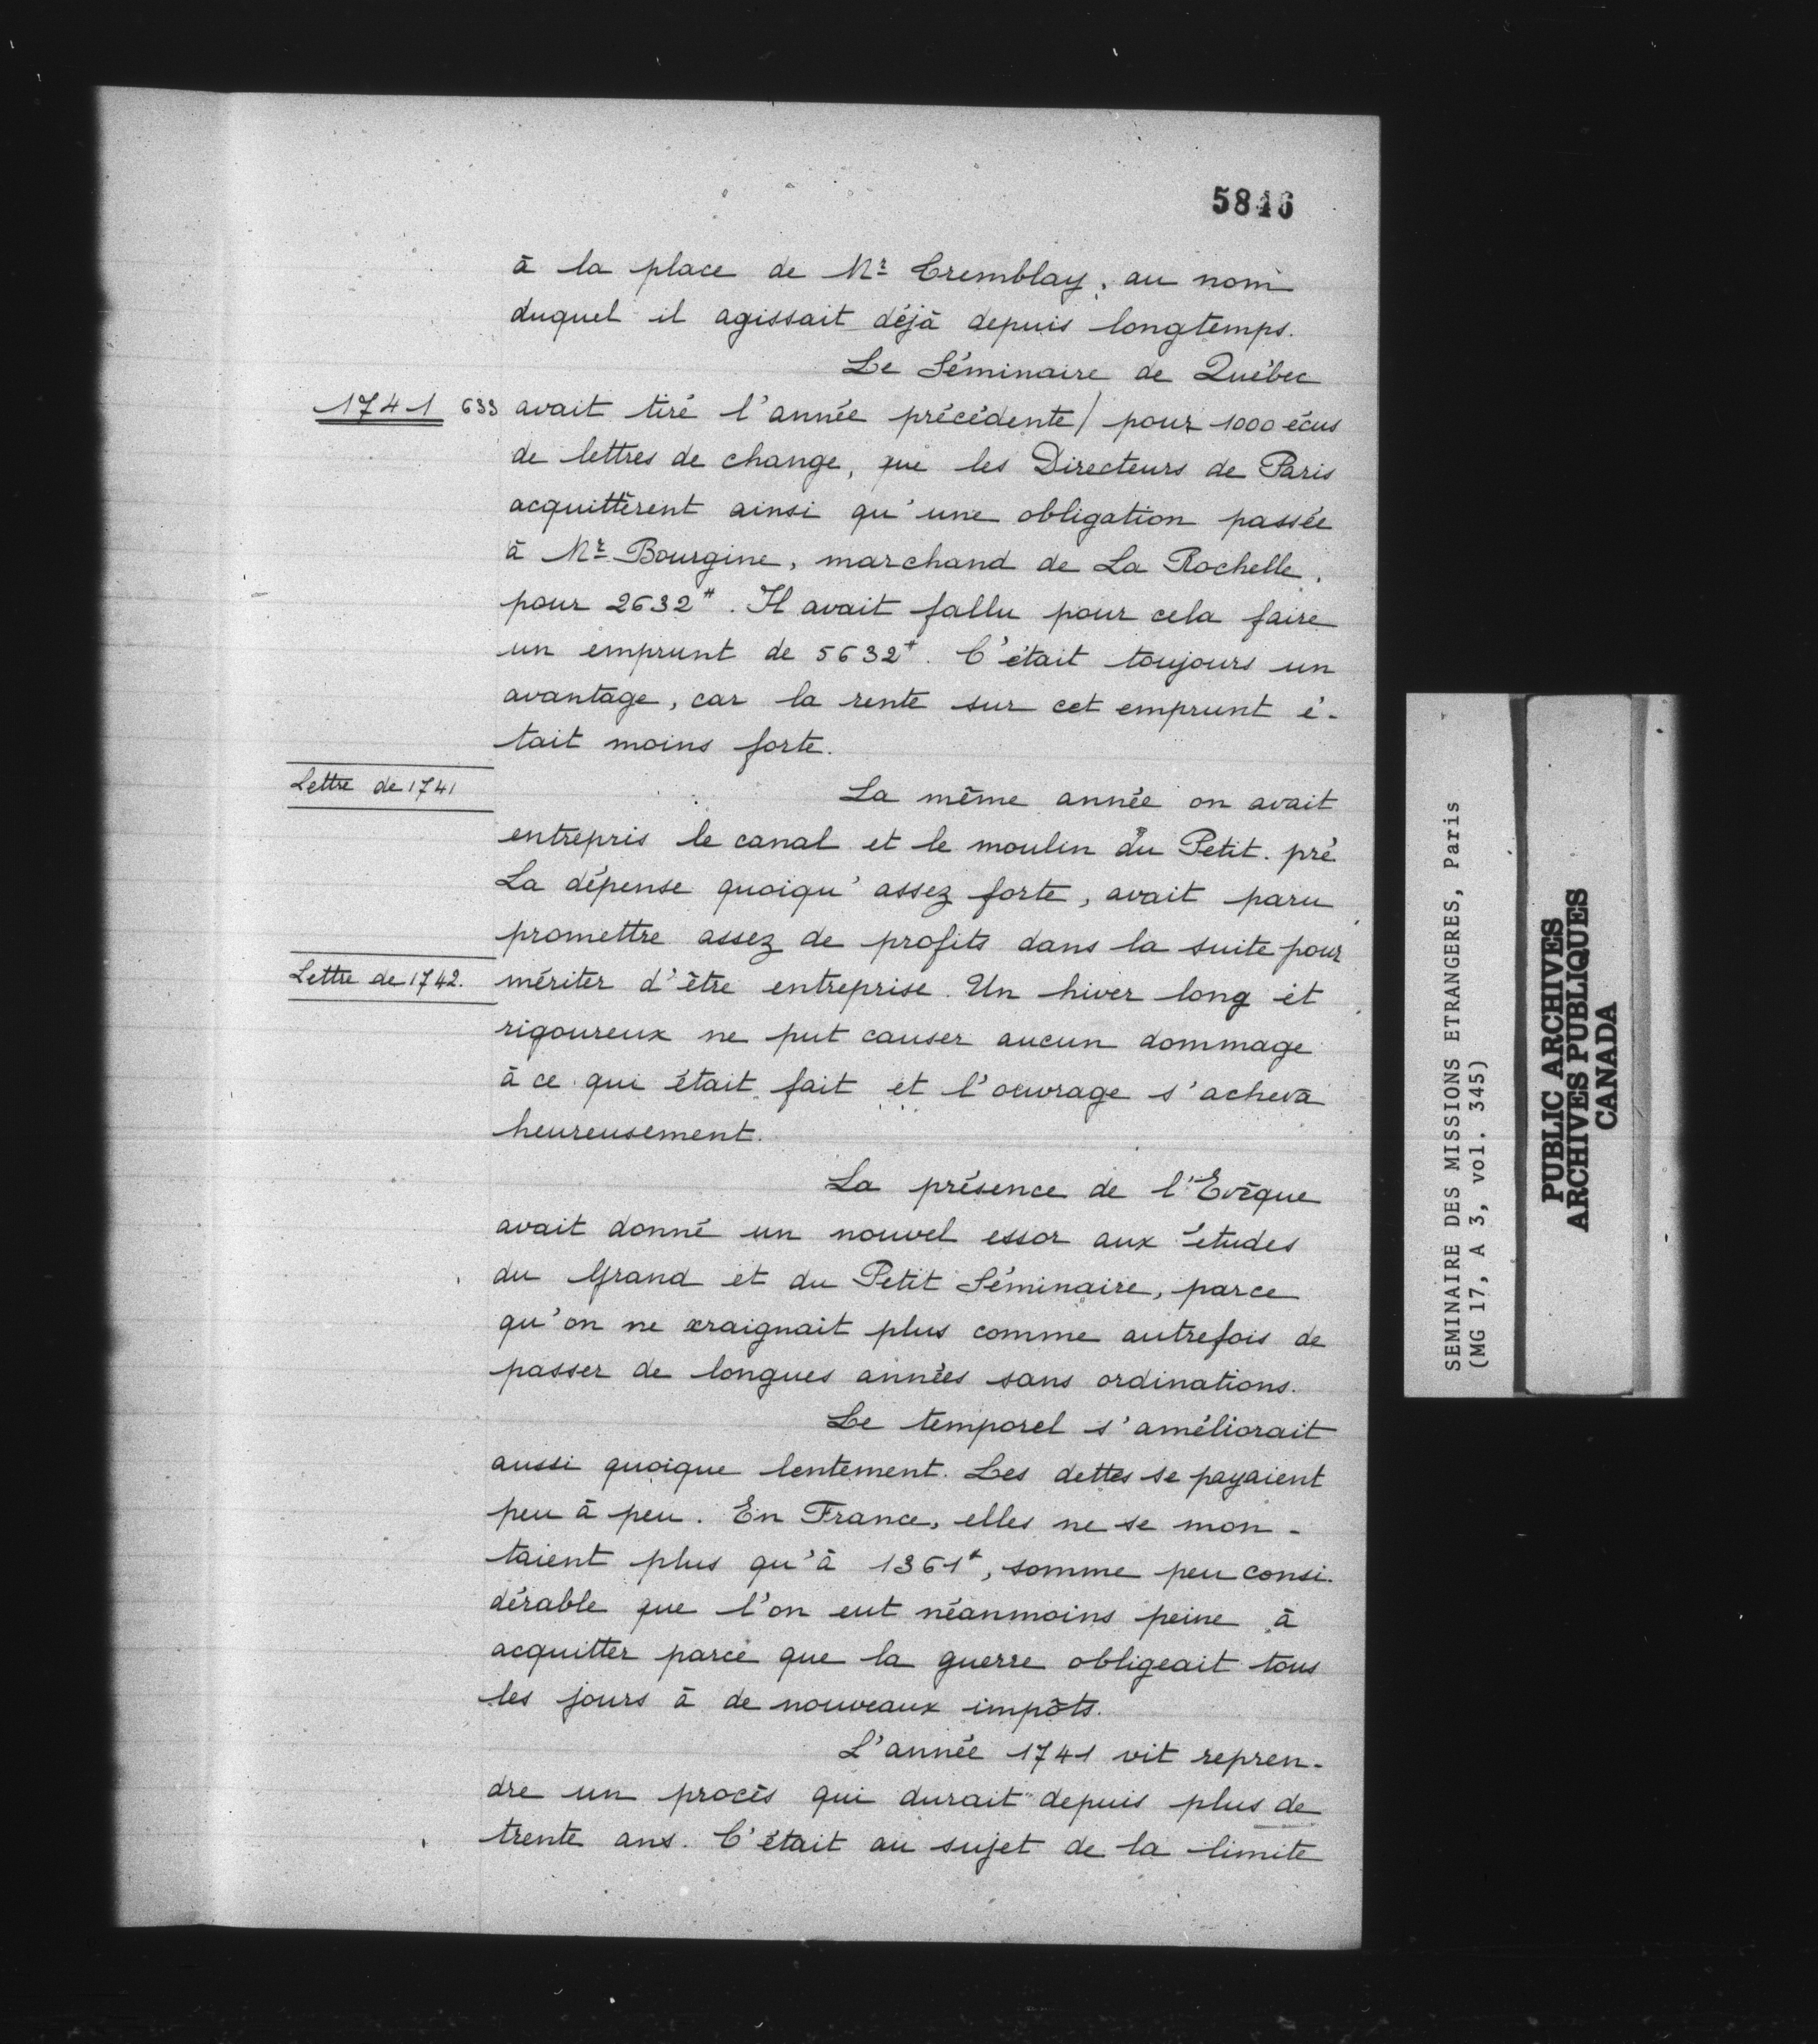 5816
à la place de Mr Tremblay, au nom
duquel il agissait déjà depuis longtemps.
Le Séminaire de Québec
1741 633 avait tiré l'année précédente / pour 1000 écus
de lettres de change, que les Directeurs de Paris
acquittèrent ainsi qu'une obligation passée
à Mr Bourgine, marchand de La Rochelle,
pour 2632#. Il avait fallu pour cela faire
un emprunt de 5632#. C'était toujours un
avantage, car la rente sur cet emprunt é-
tait moins forte.
Lettre de 1741
La même année on avait
entrepris le canal et le moulin du Petit-pré
La dépense quoiqu'assez forte, avait paru
promettre assez de profits dans la suite pour
Lettre de 1742. mériter d'être entreprise. Un hiver long et
rigoureux ne put causer aucun dommage
à ce qui était fait et l'ouvrage s'acheva
heureusement.
La présence de l'Evêque
avait donné un nouvel essor aux études
du Grand et du Petit Séminaire, parce
qu'on ne craignait plus comme autrefois de
passer de longues années sans ordinations.
Le temporel s'améliorait
aussi quoique lentement. Les dettes se payaient
peu à peu. En France, elles ne se mon-
taient plus qu'à 1361#, somme peu consi-
dérable que l'on eut néanmoins peine à
acquitter parce que la guerre obligeait tous
les jours à de nouveaux impôts.
L'année 1741 vit repren-
dre un procès qui durait depuis plus de
trente ans. C'était au sujet de la limite
SEMINAIRE DES MISSIONS ETRANGERES, Paris
(MG 17, A 3, vol. 345)
PUBLIC ARCHIVES
ARCHIVES PUBLIQUES
CANADA